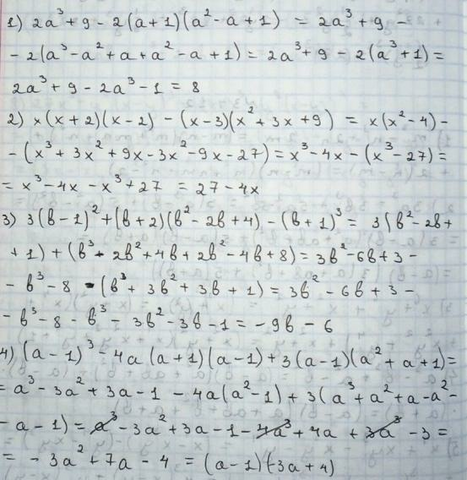 1) 2a³ + 9 - 2(a+1)(a² - a + 1) = 2a³ + 9 -
- 2(a³ - a² + a + a² - a + 1) = 2a³ + 9 - 2(a³ + 1) =
2a³ + 9 - 2a³ - 1 = 8
2) x(x+2)(x-2) - (x-3)(x² + 3x + 9) = x(x² - 4) -
- (x³ + 3x² + 9x - 3x² - 9x - 27) = x³ - 4x - (x³ - 27) =
= x³ - 4x - x³ + 27 = 27 - 4x
3) 3(b-1)² + (b+2)(b² - 2b + 4) - (b+1)³ = 3(b² - 2b +
+ 1) + (b³ - 2b² + 4b + 2b² - 4b + 8) = 3b² - 6b + 3 -
- b³ - 8 - (b³ + 3b² + 3b + 1) = 3b² - 6b + 3 -
- b³ - 8 - b³ - 3b² - 3b - 1 = -9b - 6
4) (a-1)³ - 4a(a+1)(a-1) + 3(a-1)(a² + a + 1) =
= a³ - 3a² + 3a - 1 - 4a(a² - 1) + 3(a³ + a² + a - a² -
- a - 1) = a³ - 3a² + 3a - 1 - 4a³ + 4a + 3a³ - 3 =
= - 3a² + 7a - 4 = (a-1)(-3a+4)